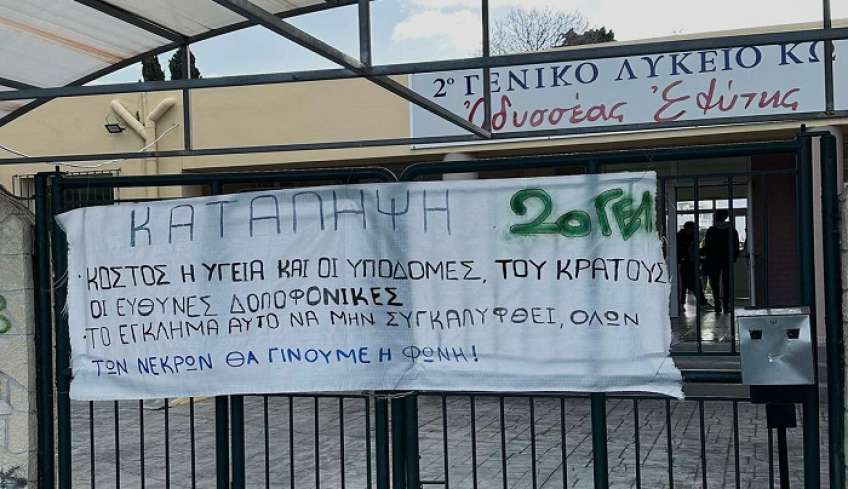 2ο ΓΕΝΙΚΟ ΛΥΚΕΙΟ ΚΩ
Οδυσσέας Ελύτης
ΚΑΤΑΛΗΨΗ 2ο ΓΕΛ
· ΚΟΣΤΟΣ Η ΥΓΕΙΑ ΚΑΙ ΟΙ ΥΠΟΔΟΜΕΣ, ΤΟΥ ΚΡΑΤΟΥΣ
ΟΙ ΕΥΘΥΝΕΣ ΔΟΛΟΦΟΝΙΚΕΣ
· ΤΟ ΕΓΚΛΗΜΑ ΑΥΤΟ ΝΑ ΜΗΝ ΣΥΓΚΑΛΥΦΘΕΙ, ΟΛΩΝ
ΤΩΝ ΝΕΚΡΩΝ ΘΑ ΓΙΝΟΥΜΕ Η ΦΩΝΗ!